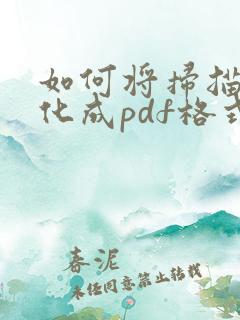 如何将扫描
化成pdf格式
春泥
未任同意禁止转载